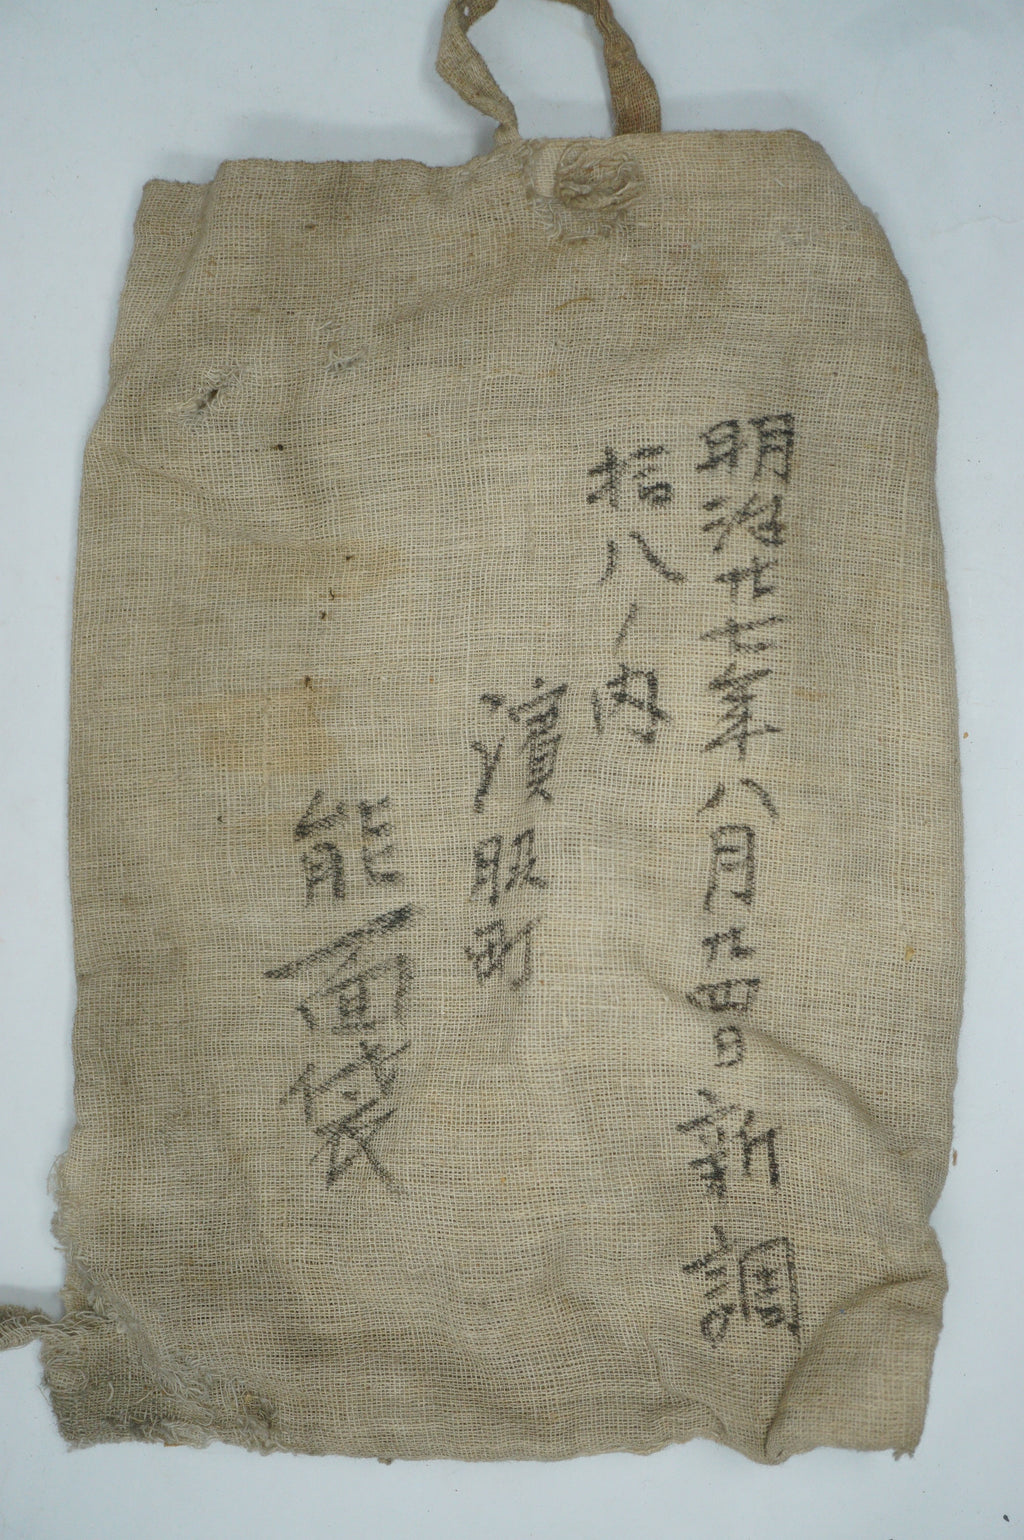 明治廿七年八月廿四日新調
拾八ノ内
濱服町
能面袋